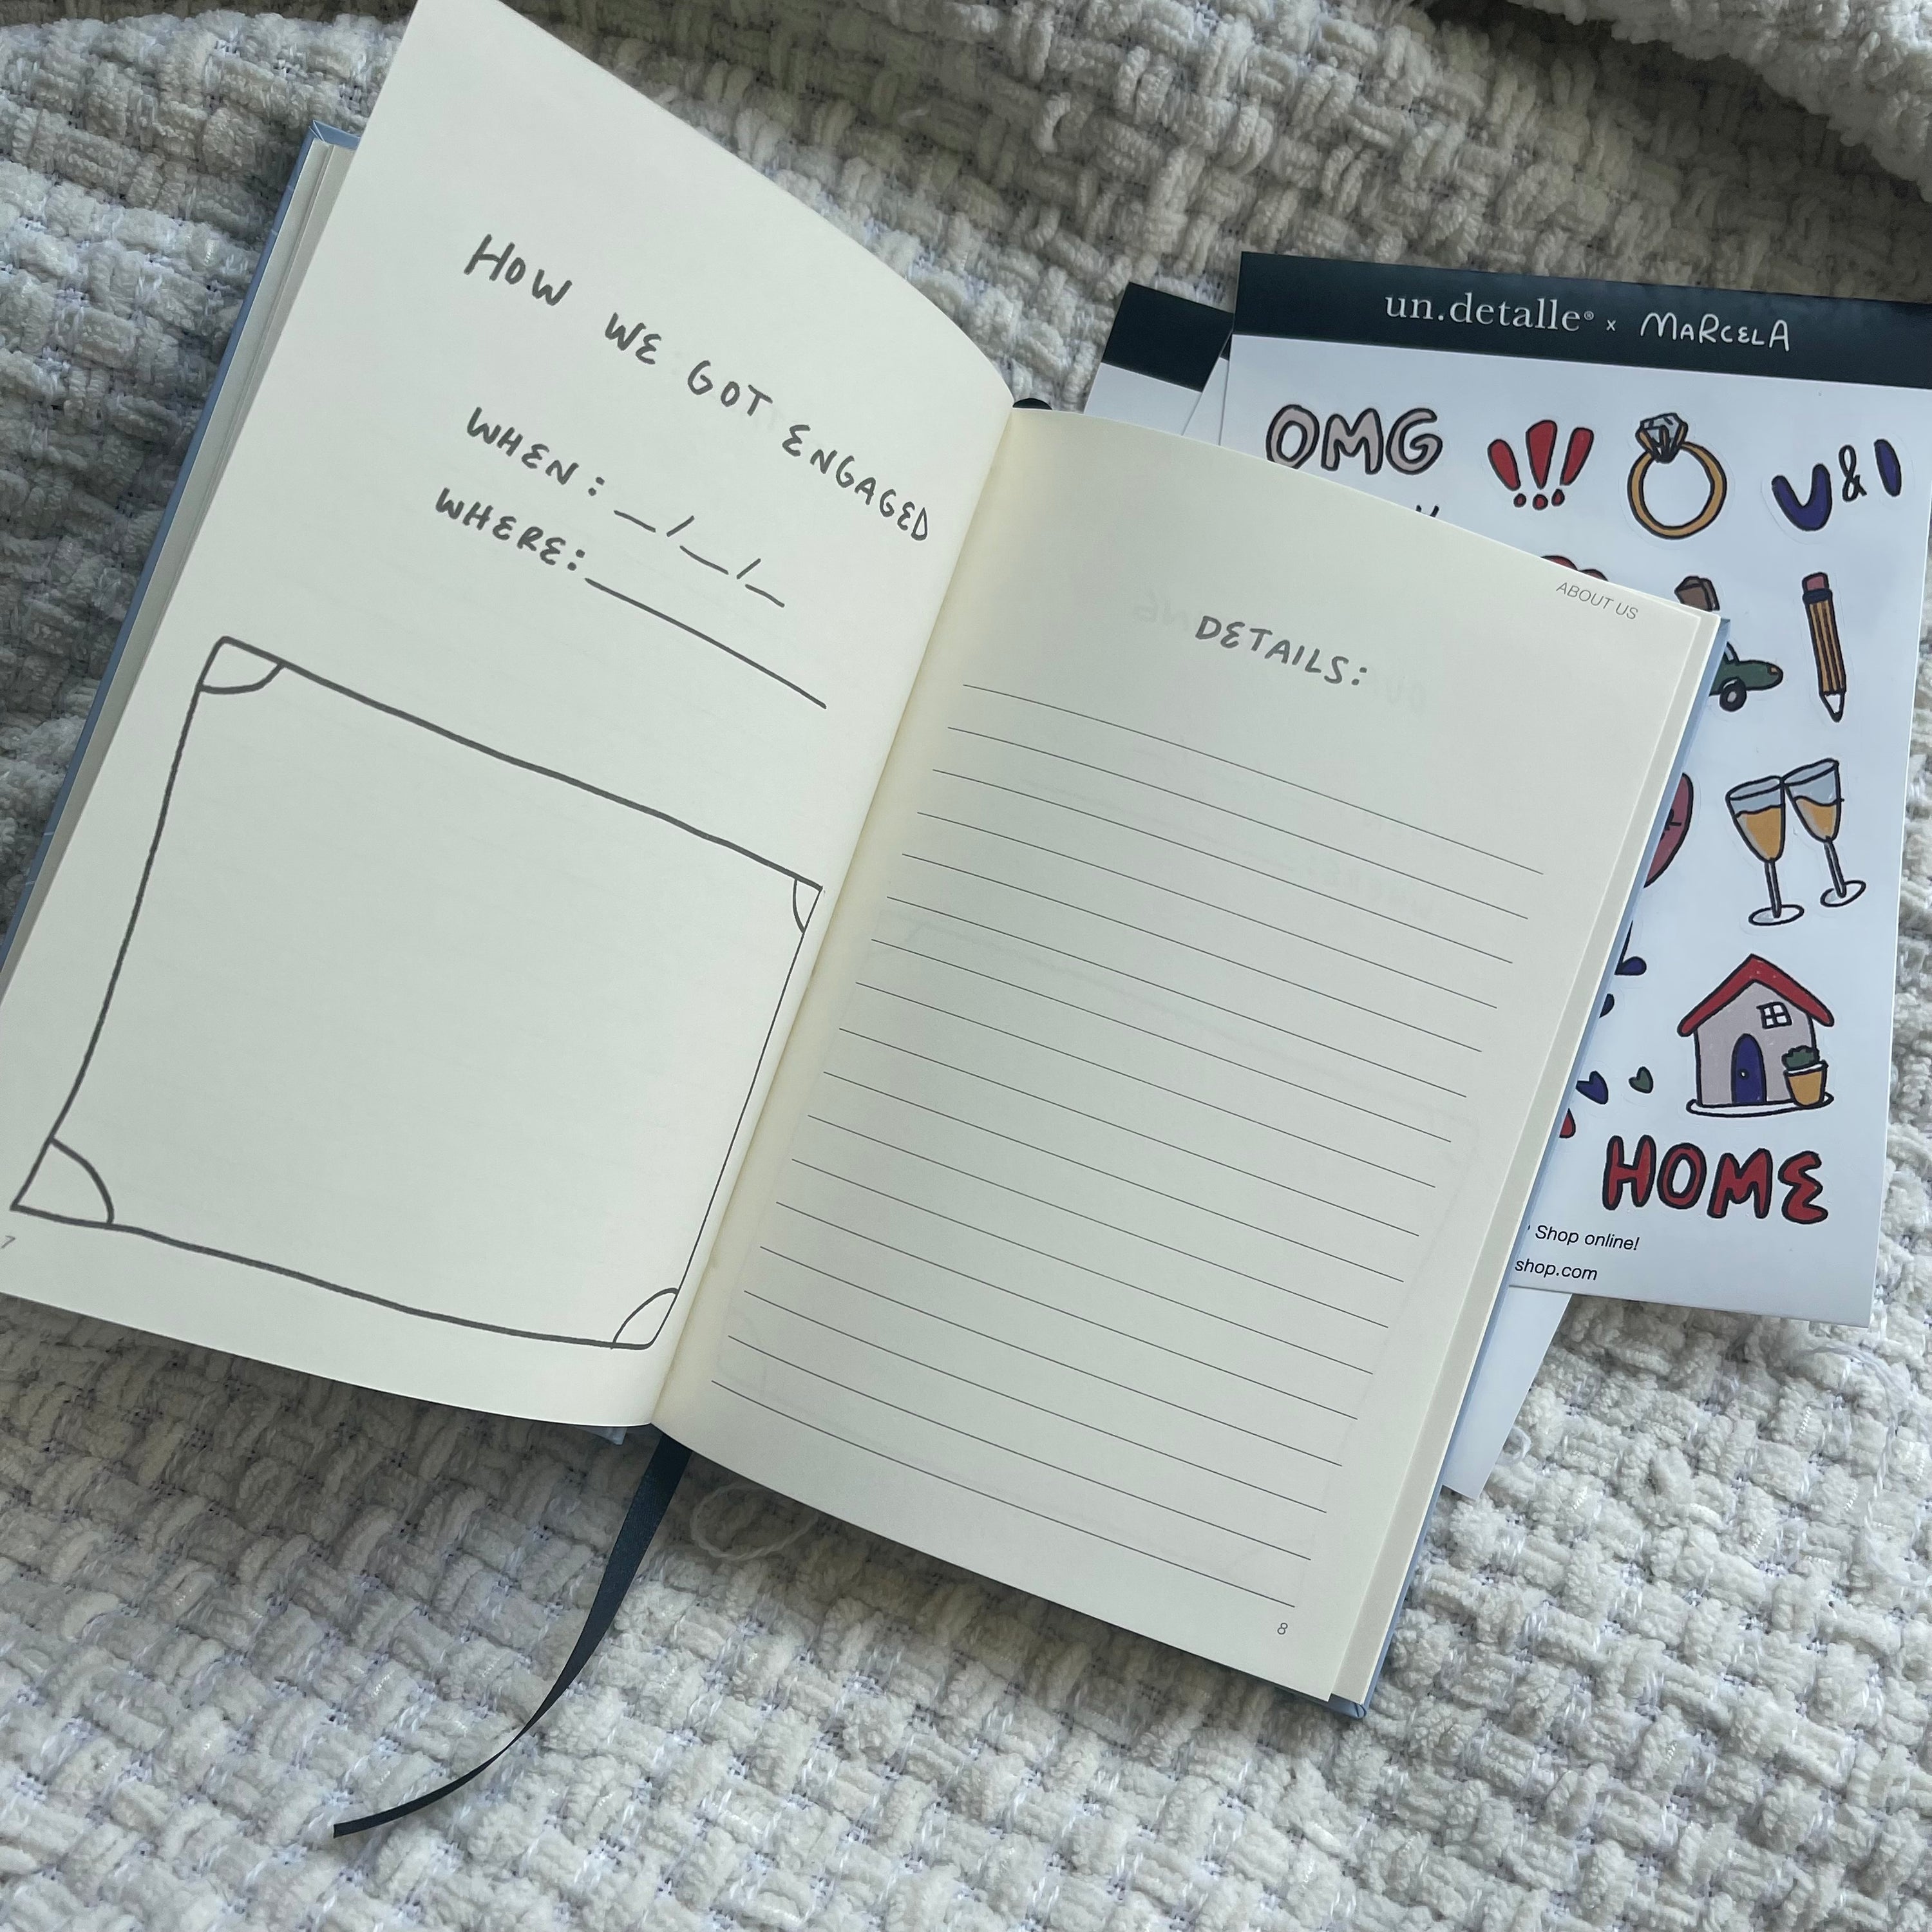 HOW WE GOT ENGAGED
WHEN: __/__/__
WHERE: ________
7
ABOUT US
DETAILS:
8
un.detalle® x MARCELA
OMG !!! U & I
HOME
Shop online!
shop.com